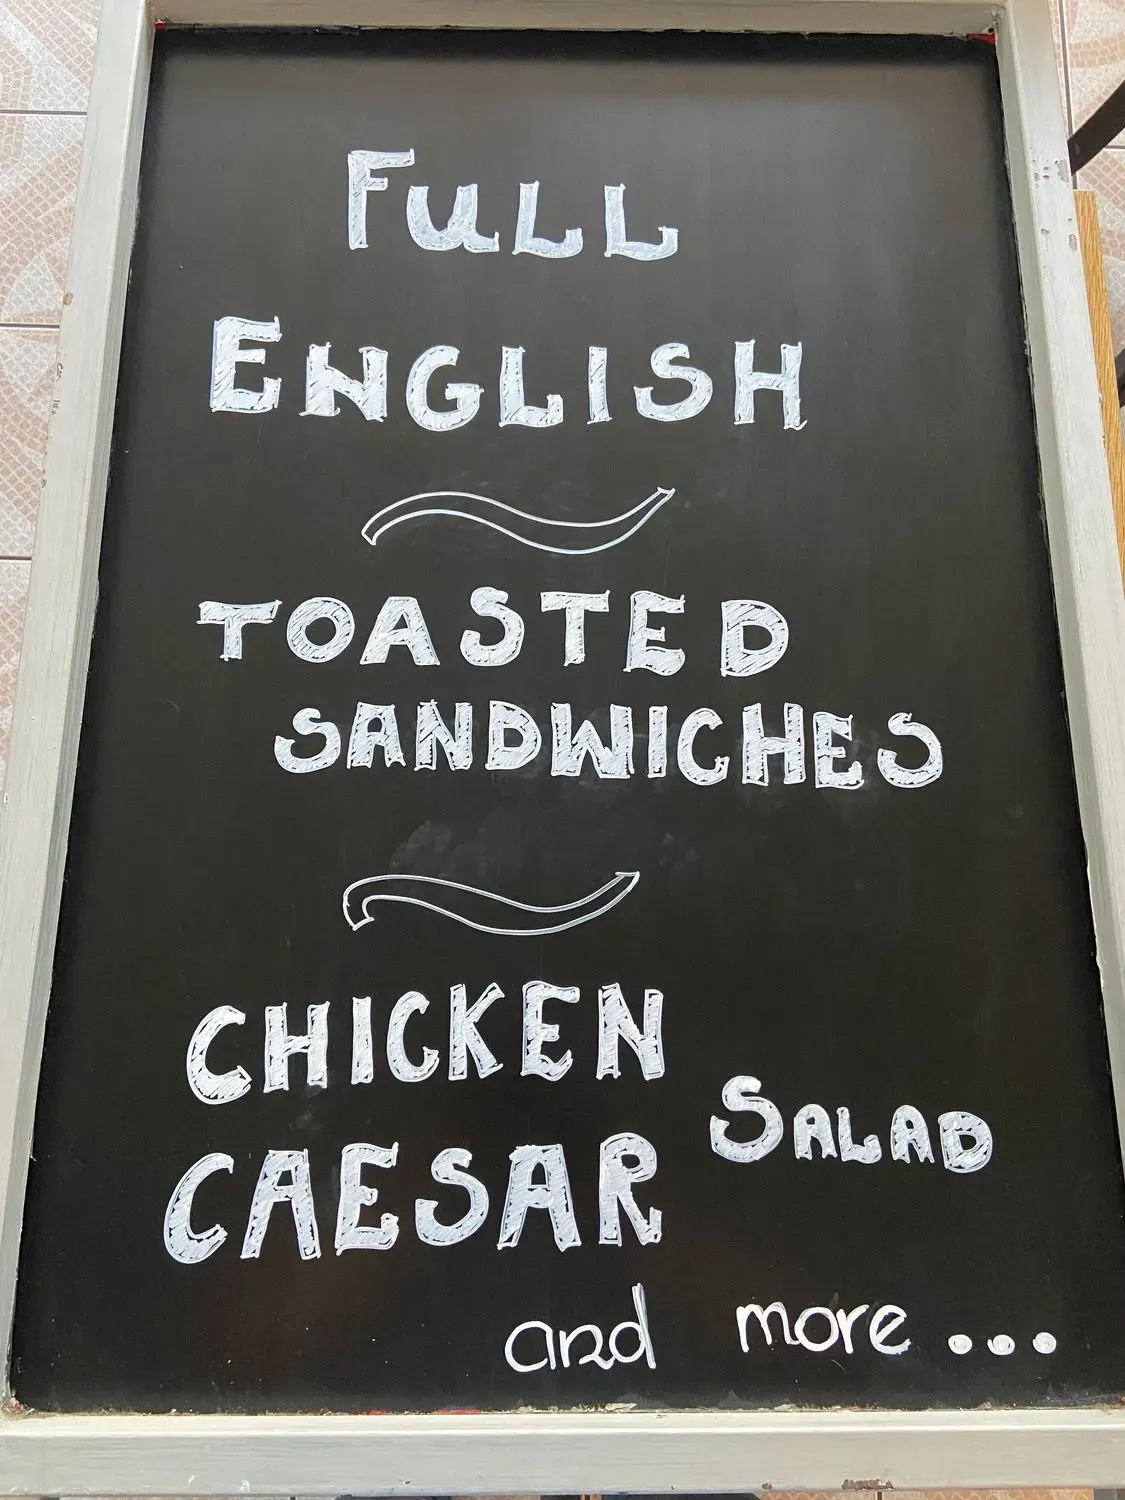 FuLL
ENGLISH
TOASTED
SANDWICHES
CHICKEN
CAESAR SALAD
and more...